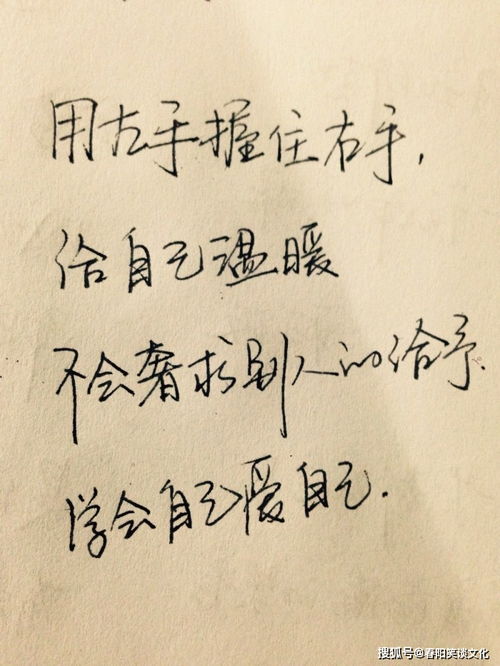 用左手握住右手,
给自己温暖
不会奢求别人的给予.
学会自己爱自己.
搜狐号@春阳笑谈文化